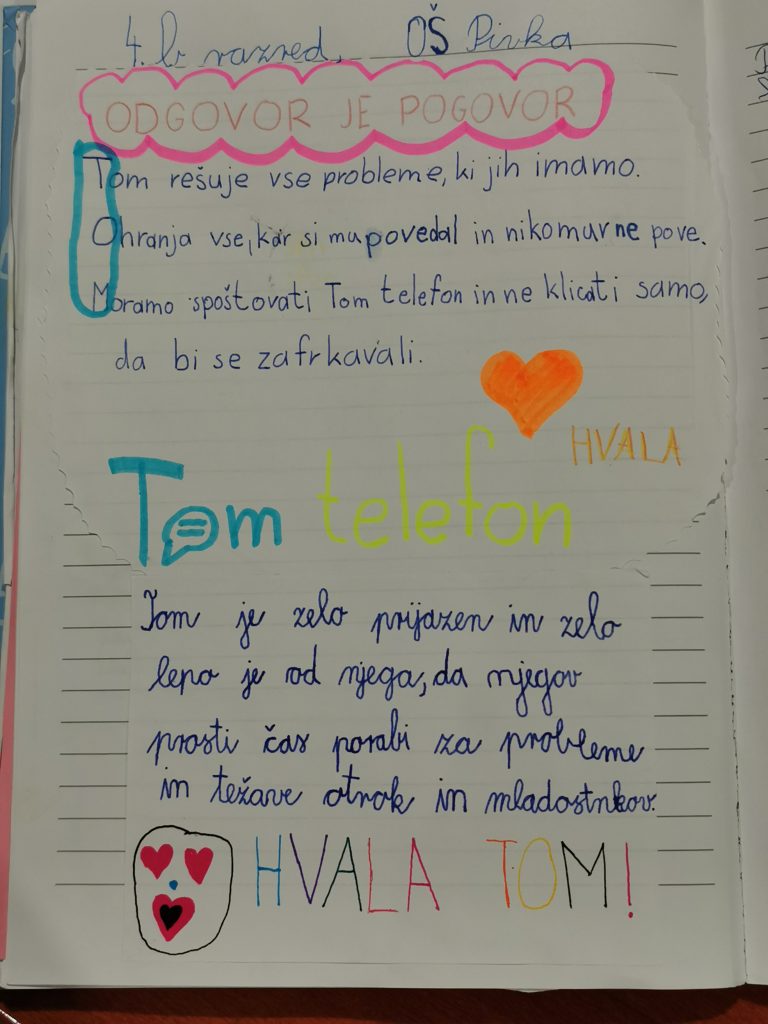 4. b razred, OŠ Pivka
ODGOVOR JE POGOVOR
Tom rešuje vse probleme, ki jih imamo.
Ohranja vse, kar si mu povedal in nikomur ne pove.
Moramo spoštovati Tom telefon in ne klicati samo,
da bi se zafrkavali.
HVALA
Tom telefon
Tom je zelo prijazen in zelo
lepo je od njega, da njegov
prosti čas porabi za probleme
in težave otrok in mladostnkov.
HVALA TOM!